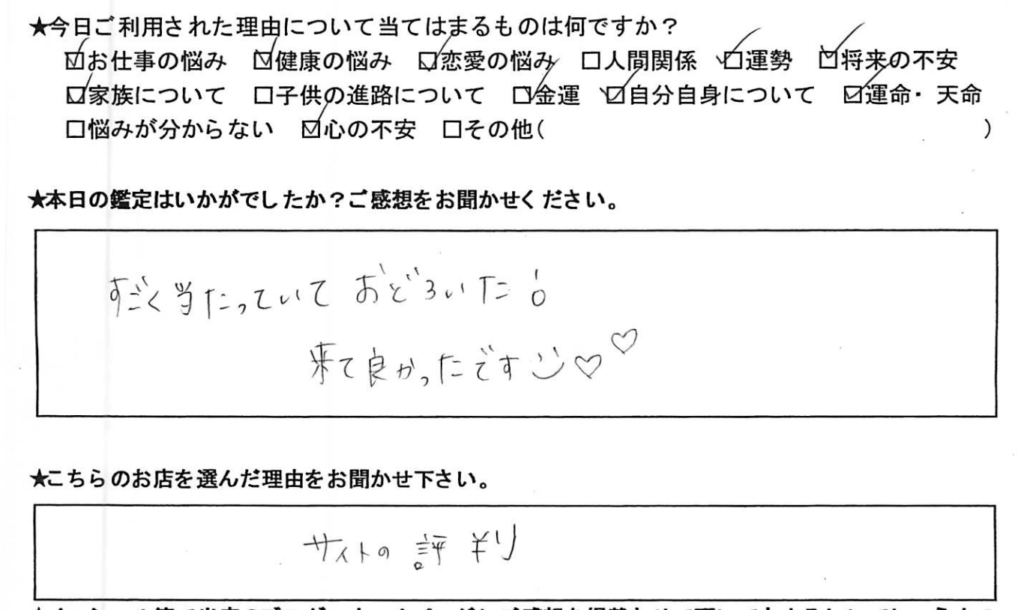 ★今日ご利用された理由について当てはまるものは何ですか？
☑お仕事の悩み ☑健康の悩み ☑恋愛の悩み □人間関係 ☑運勢 ☑将来の不安
☑家族について □子供の進路について ☑金運 ☑自分自身について ☑運命・天命
□悩みが分からない ☑心の不安 □その他( )
★本日の鑑定はいかがでしたか？ご感想をお聞かせください。
すごく当たっていて おどろいた!
来て良かったです♡♡
★こちらのお店を選んだ理由をお聞かせ下さい。
サイトの評判